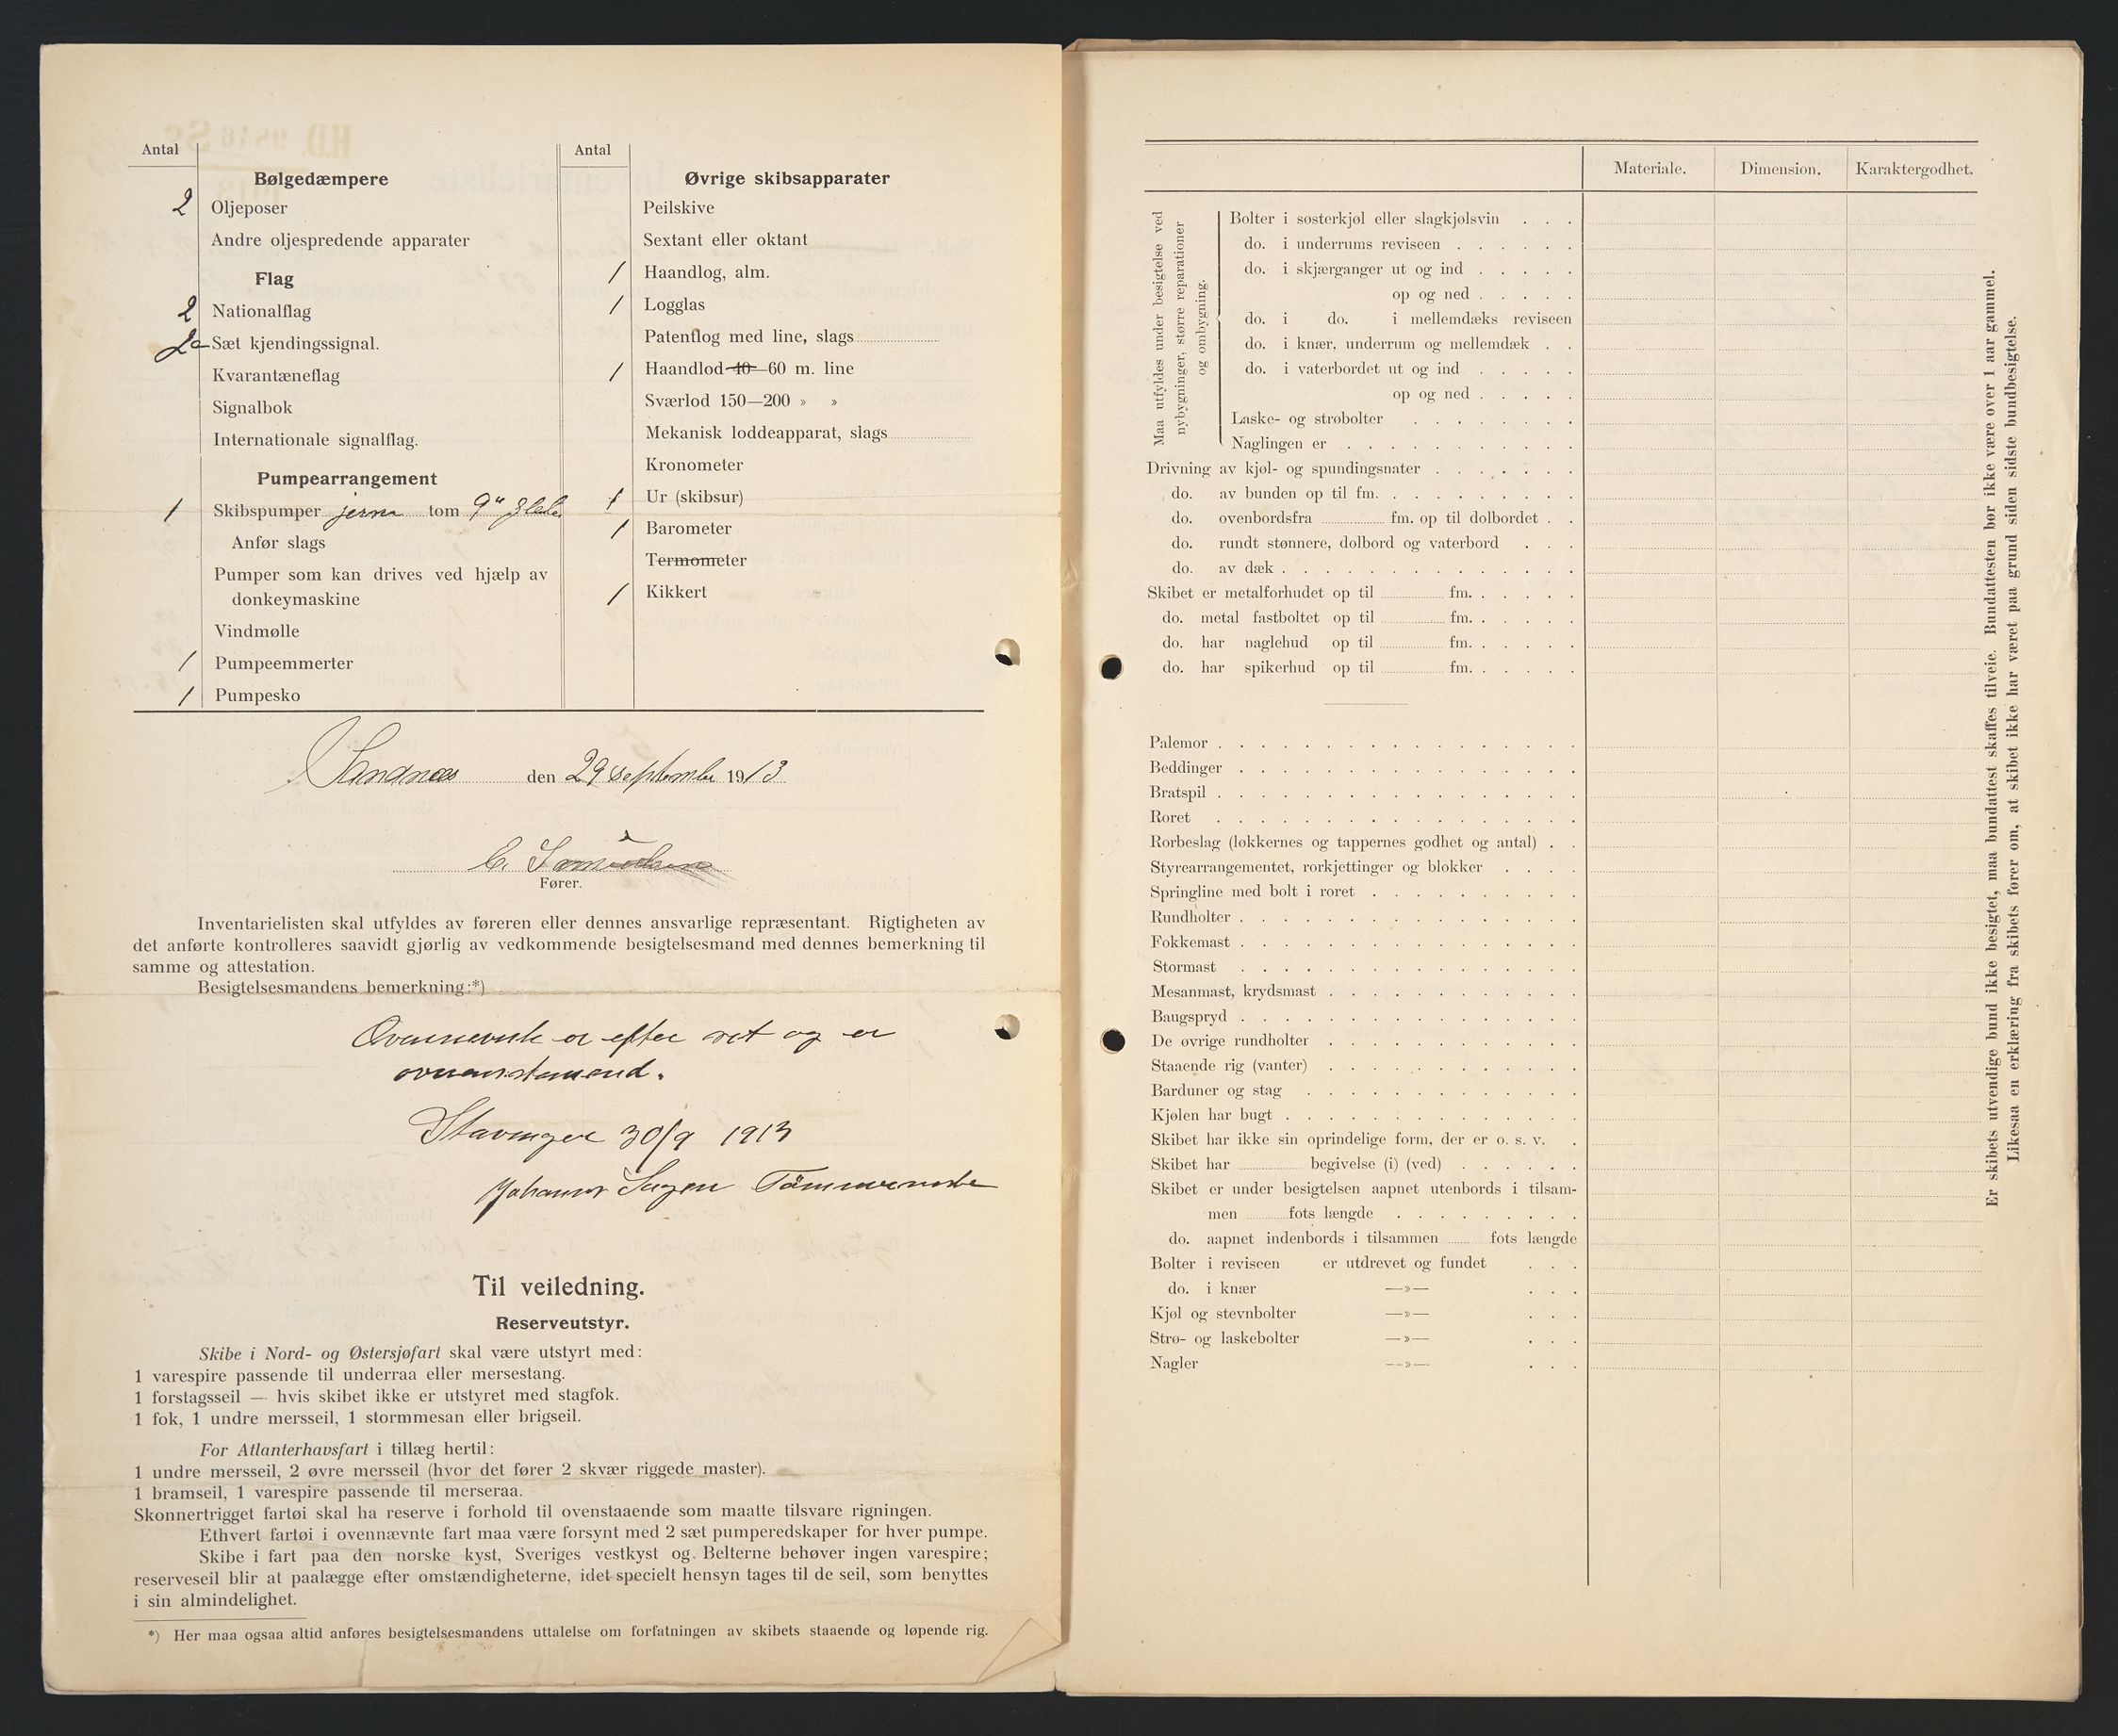 Antal
Bølgedæmpere
2 Oljeposer
Andre oljespredende apparater
Flag
2 Nationalflag
2 Sæt kjendingssignal.
Kvarantæneflag
Signalbok
Internationale signalflag.
Pumpearrangement
1 Skibspumper jern tom 9"
Anfør slags
Pumper som kan drives ved hjælp av
donkeymaskine
Vindmølle
1 Pumpeemmerter
1 Pumpesko
Antal
Øvrige skibsapparater
Peilskive
Sextant eller oktant
1 Haandlog, alm.
1 Logglas
Patentlog med line, slags
1 Haandlod 40—60 m. line
Sværlod 150—200 » »
Mekanisk loddeapparat, slags
Kronometer
1 Ur (skibsur)
1 Barometer
Termometer
1 Kikkert
Sandnæs den 29 september 1913
Fører.
Inventarielisten skal utfyldes av føreren eller dennes ansvarlige repræsentant. Rigtigheten av
det anførte kontrolleres saavidt gjørlig av vedkommende besigtelsesmand med dennes bemerkning til
samme og attestation.
Besigtelsesmandens bemerkning:*)
Ovennevnte er efter set og er
Stavanger 30/9 1913
Johannes
Til veiledning.
Reserveutstyr.
Skibe i Nord- og Østersjøfart skal være utstyrt med:
1 varespire passende til underraa eller mersestang.
1 forstagsseil — hvis skibet ikke er utstyret med stagfok.
1 fok, 1 undre mersseil, 1 stormmesan eller brigseil.
For Atlanterhavsfart i tillæg hertil:
1 undre mersseil, 2 øvre mersseil (hvor det fører 2 skvær riggede master).
1 bramseil, 1 varespire passende til merseraa.
Skonnertrigget fartøi skal ha reserve i forhold til ovenstaaende som maatte tilsvare rigningen.
Ethvert fartøi i ovennævnte fart maa være forsynt med 2 sæt pumperedskaper for hver pumpe.
Skibe i fart paa den norske kyst, Sveriges vestkyst og Belterne behøver ingen varespire;
reserveseil blir at paalægge efter omstændigheterne, idet specielt hensyn tages til de seil, som benyttes
i sin almindelighet.
*) Her maa ogsaa altid anføres besigtelsesmandens uttalelse om forfatningen av skibets staaende og løpende rig.
Materiale. Dimension. Karaktergodhet.
Maa utfyldes under besigtelse ved
nybygninger, større reparationer
og ombygning.
Bolter i søsterkjøl eller slagkjølsvin . . .
do. i underrums reviseen . . . . . .
do. i skjærganger ut og ind . . . . .
op og ned . . . . .
do. i do. i mellemdæks reviseen
do. i knær, underrum og mellemdæk . .
do. i vaterbordet ut og ind . . . . .
op og ned . . . . .
Laske- og strøbolter . . . . . . . .
Naglingen er . . . . . . . . . . .
Drivning av kjøl- og spundingsnater . . . . . . .
do. av bunden op til fm. . . . . . . . . .
do. ovenbordsfra fm. op til dolbordet . .
do. rundt stønnere, dolbord og vaterbord . . .
do. av dæk . . . . . . . . . . . . . .
Skibet er metalforhudet op til fm. . . . . .
do. metal fastboltet op til fm. . . . . .
do. har naglehud op til fm. . . . . .
do. har spikerhud op til fm. . . . . .
Palemor . . . . . . . . . . . . . . . . .
Beddinger . . . . . . . . . . . . . . . .
Bratspil . . . . . . . . . . . . . . . . .
Roret . . . . . . . . . . . . . . . . .
Rorbeslag (løkkernes og tappernes godhet og antal) . .
Styrearrangementet, rorkjettinger og blokker . . . .
Springline med bolt i roret . . . . . . . . . .
Rundholter . . . . . . . . . . . . . . . .
Fokkemast . . . . . . . . . . . . . . . .
Stormast . . . . . . . . . . . . . . . .
Mesanmast, krydsmast . . . . . . . . . . . .
Baugspryd . . . . . . . . . . . . . . . .
De øvrige rundholter . . . . . . . . . . . .
Staaende rig (vanter) . . . . . . . . . . . .
Barduner og stag . . . . . . . . . . . . .
Kjølen har bugt . . . . . . . . . . . . . .
Skibet har ikke sin oprindelige form, der er o. s. v. .
Skibet har begivelse (i) (ved) . . . . . .
Skibet er under besigtelsen aapnet utenbords i tilsam-
men fots længde . . . . . . . . .
do. aapnet indenbords i tilsammen fots længde
Bolter i reviseen er utdrevet og fundet . . .
do. i knær —»— . . .
Kjøl og stevnbolter —»— . . .
Strø- og laskebolter —»— . . .
Nagler —»— . . .
Er skibets utvendige bund ikke besigtet, maa bundattest skaffes tilveie. Bundattesten bør ikke være over 1 aar gammel.
Likesaa en erklæring fra skibets fører om, at skibet ikke har været paa grund siden sidste bundbesigtelse.